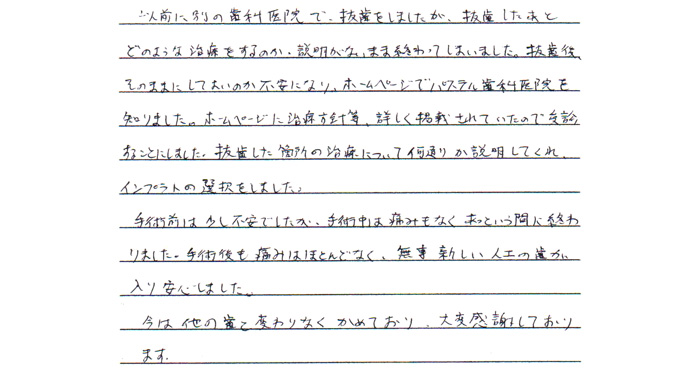 以前に別の歯科医院で、抜歯をしましたが、抜歯したあと
どのような治療をするのか、説明がないまま終わってしまいました。抜歯後、
そのままにしておいのか不安になり、ホームページでパステル歯科医院を
知りました。ホームページに治療方針等、詳しく掲載されていたので受診
することにしました。抜歯した箇所の治療について何通りか説明してくれ、
インプラトの選択をしました。
手術前は少し不安でしたが、手術中は痛みもなくあっという間に終わ
りました。手術後も痛みはほとんどなく、無事新しい人工の歯が
入り安心しました。
今は他の歯と変わりなくかめており、大変感謝しており
ます。